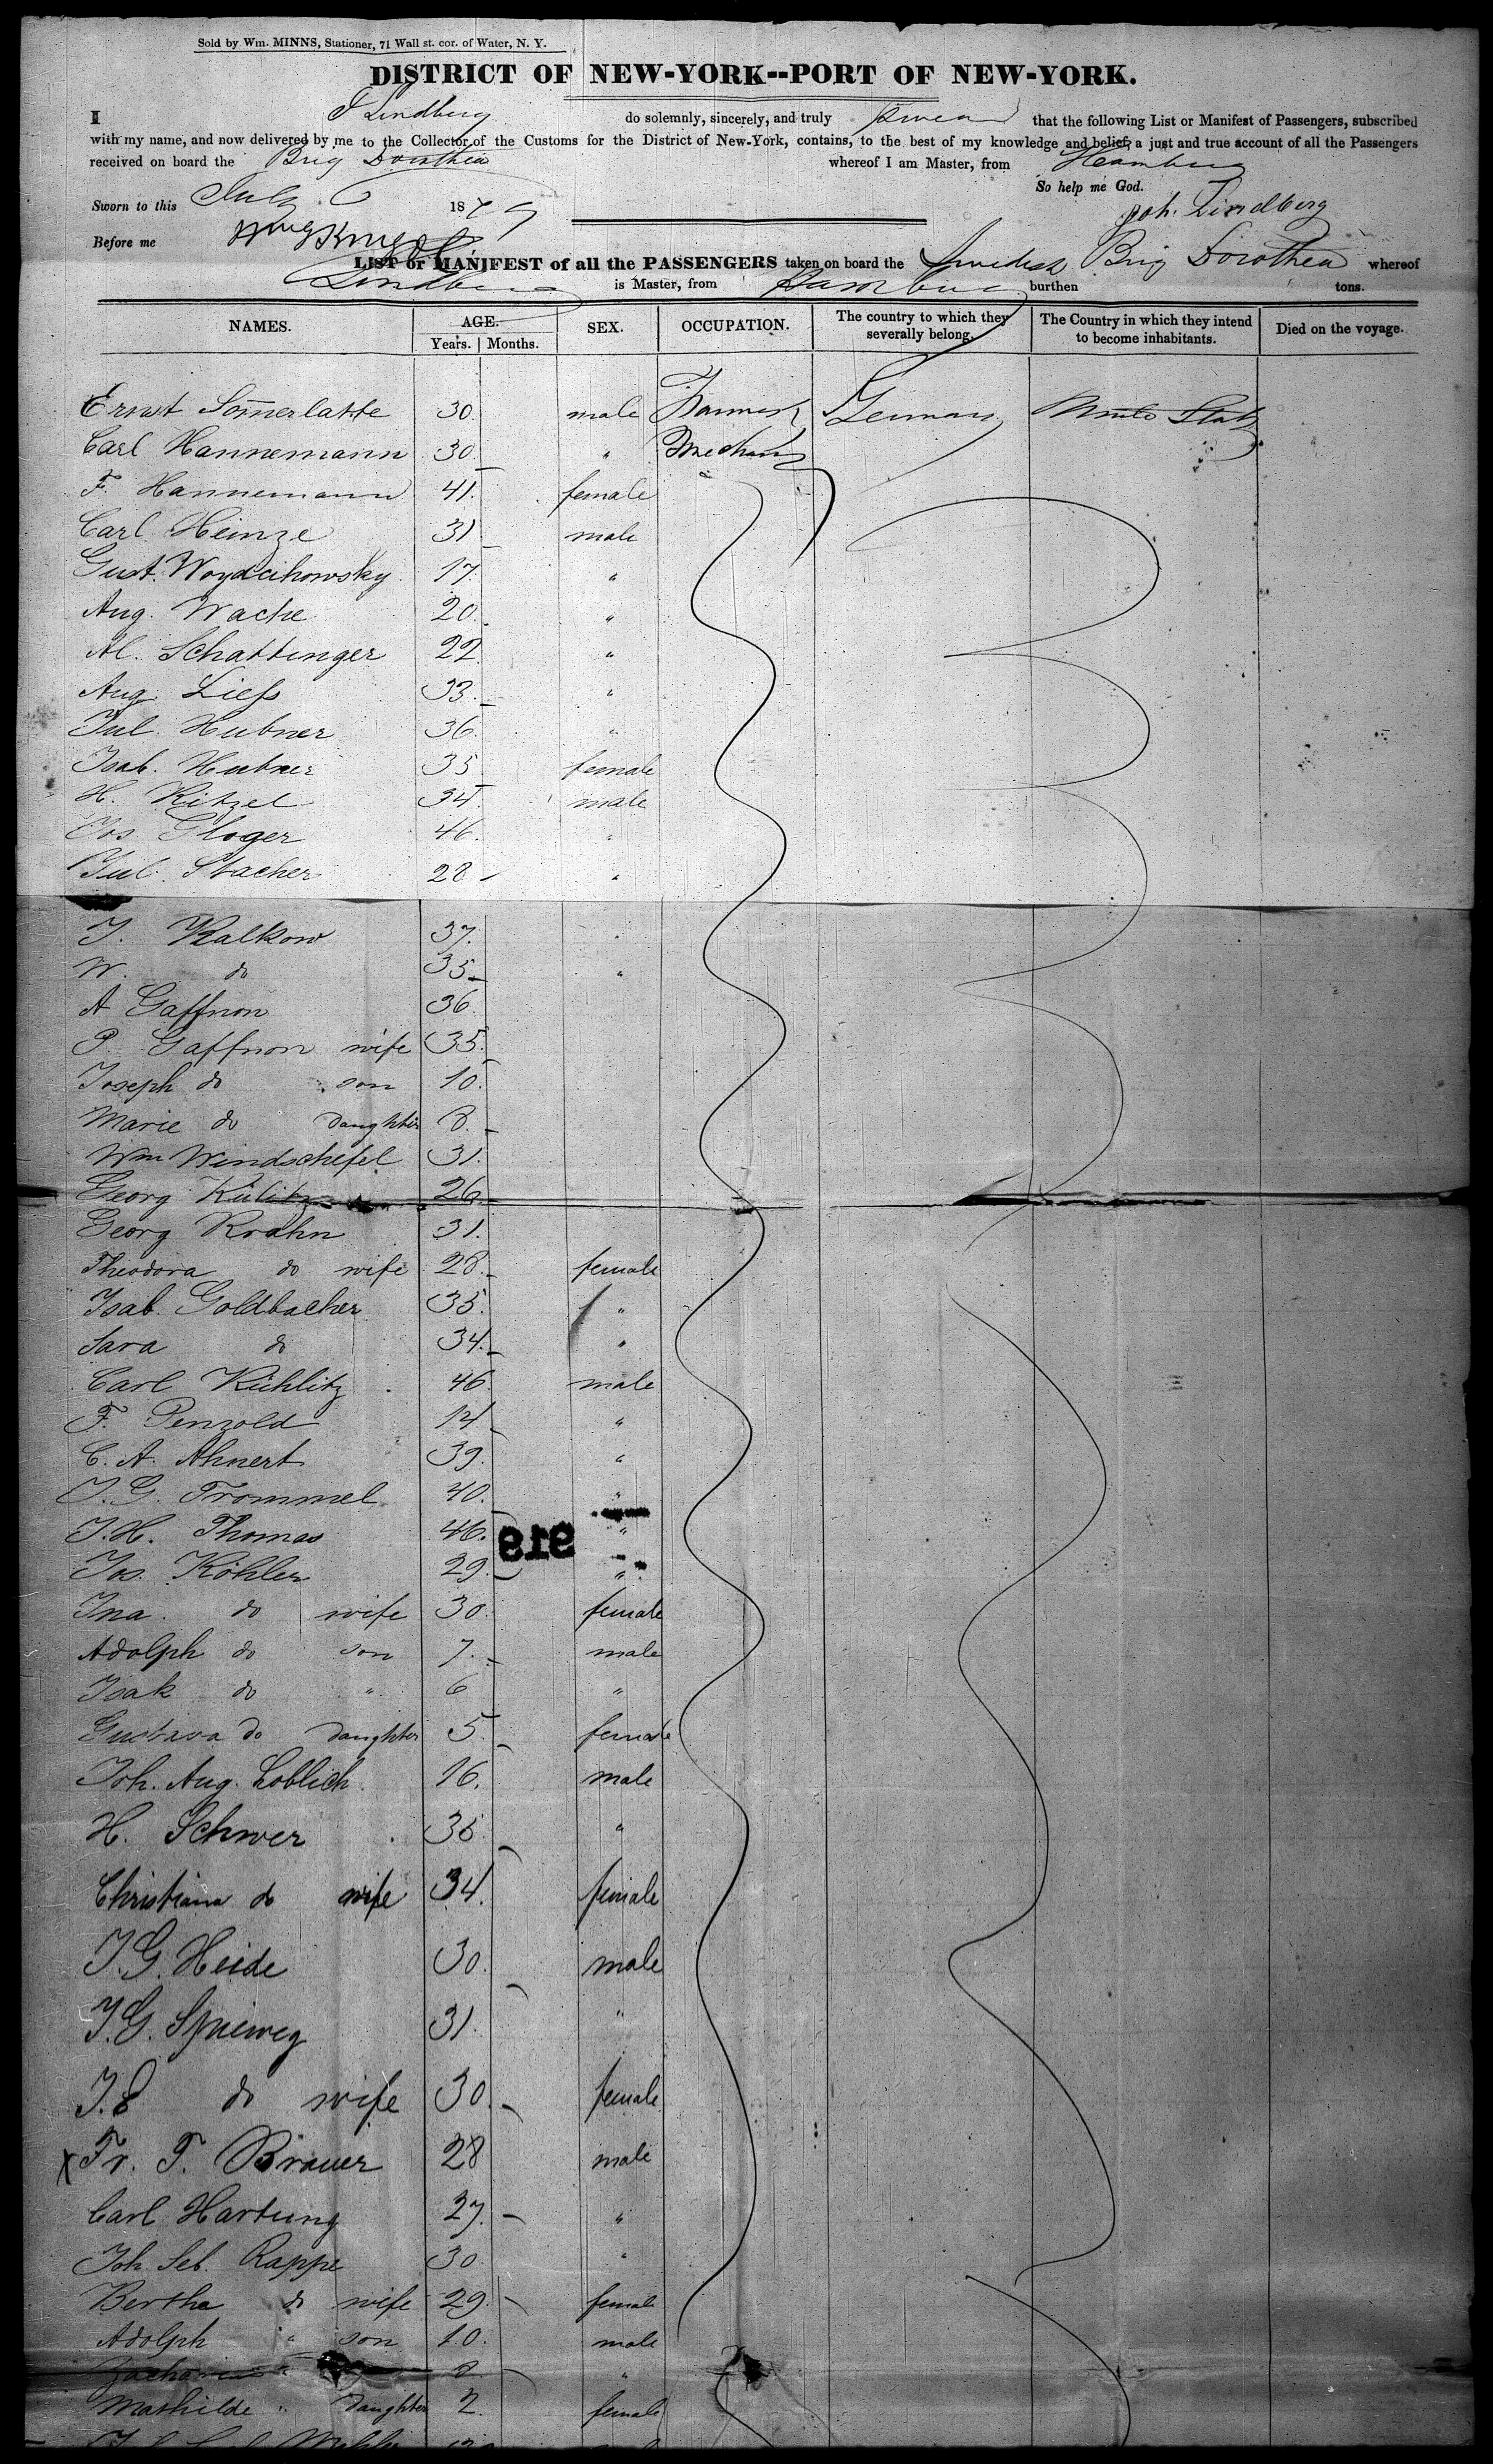 Sold by Wm. MINNS, Stationer, 71 Wall st. cor. of Water, N. Y.
DISTRICT OF NEW-YORK--PORT OF NEW-YORK.
I J Lindberg do solemnly, sincerely, and truly swear that the following List or Manifest of Passengers, subscribed
with my name, and now delivered by me to the Collector of the Customs for the District of New-York, contains, to the best of my knowledge and belief, a just and true account of all the Passengers
received on board the Brig Dorothea whereof I am Master, from Hamburg
So help me God.
Sworn to this July 6 18
Joh. Lindberg
Before me
LIST or MANIFEST of all the PASSENGERS taken on board the Swedish Brig Dorothea whereof
Lindberg is Master, from Hamburg burthen tons.
NAMES. AGE. SEX. OCCUPATION. The country to which they severally belong. The Country in which they intend to become inhabitants. Died on the voyage.
Years. Months.
Ernst Som̄erlatte 30. male Farmer Germany United States
Carl Hannemann 30. " Mechanic
F. Hannemann 41. female
Carl Heinze 31 male
Gust. Woydcihowsky 17. "
Aug. Wache 20. "
Al. Schattinger 22. "
Aug. Liefs 33. "
Jul. Hubner 36. "
Isab. Hubner 35 female
H. Kitzel 34. male
Jos Gloger 46. "
Jul. Stacher 28 "
J. Kalkow 37. "
W. do 35 "
A Gaffron 36.
P. Gaffron wife 35.
Joseph do son 10.
Marie do Daughter 8.
Wm Windschefel 31.
Georg Külitz 26
Georg Krahn 31.
Theodora do wife 28. female
Isab. Goldbacher 35. "
Sara do 34. "
Carl Kühlitz 46. male
F. Penzold 14 "
C. A. Ahnert 39. "
J. G. Trommel 40. "
J. H. Thomas 46. "
919
Jos. Köhler 29. "
Ina. do wife 30. female
Adolph do son 7. male
Isak do " 6 "
Gustava do Daughter 5. female
Joh. Aug. Loblich 16. male
H. Schwer 36. "
Christiana do wife 34. female
J. G. Heide 30. male
J. G. Spieweg 31. "
J. E do wife 30. female
x Fr. F. Brauer 28 male
Carl Hartung 27. "
Joh Seb. Rappe 30 "
Bertha do wife 29. female
Adolph " son 10. male
Zacharias " "
Mathilde " Daughter 2. female